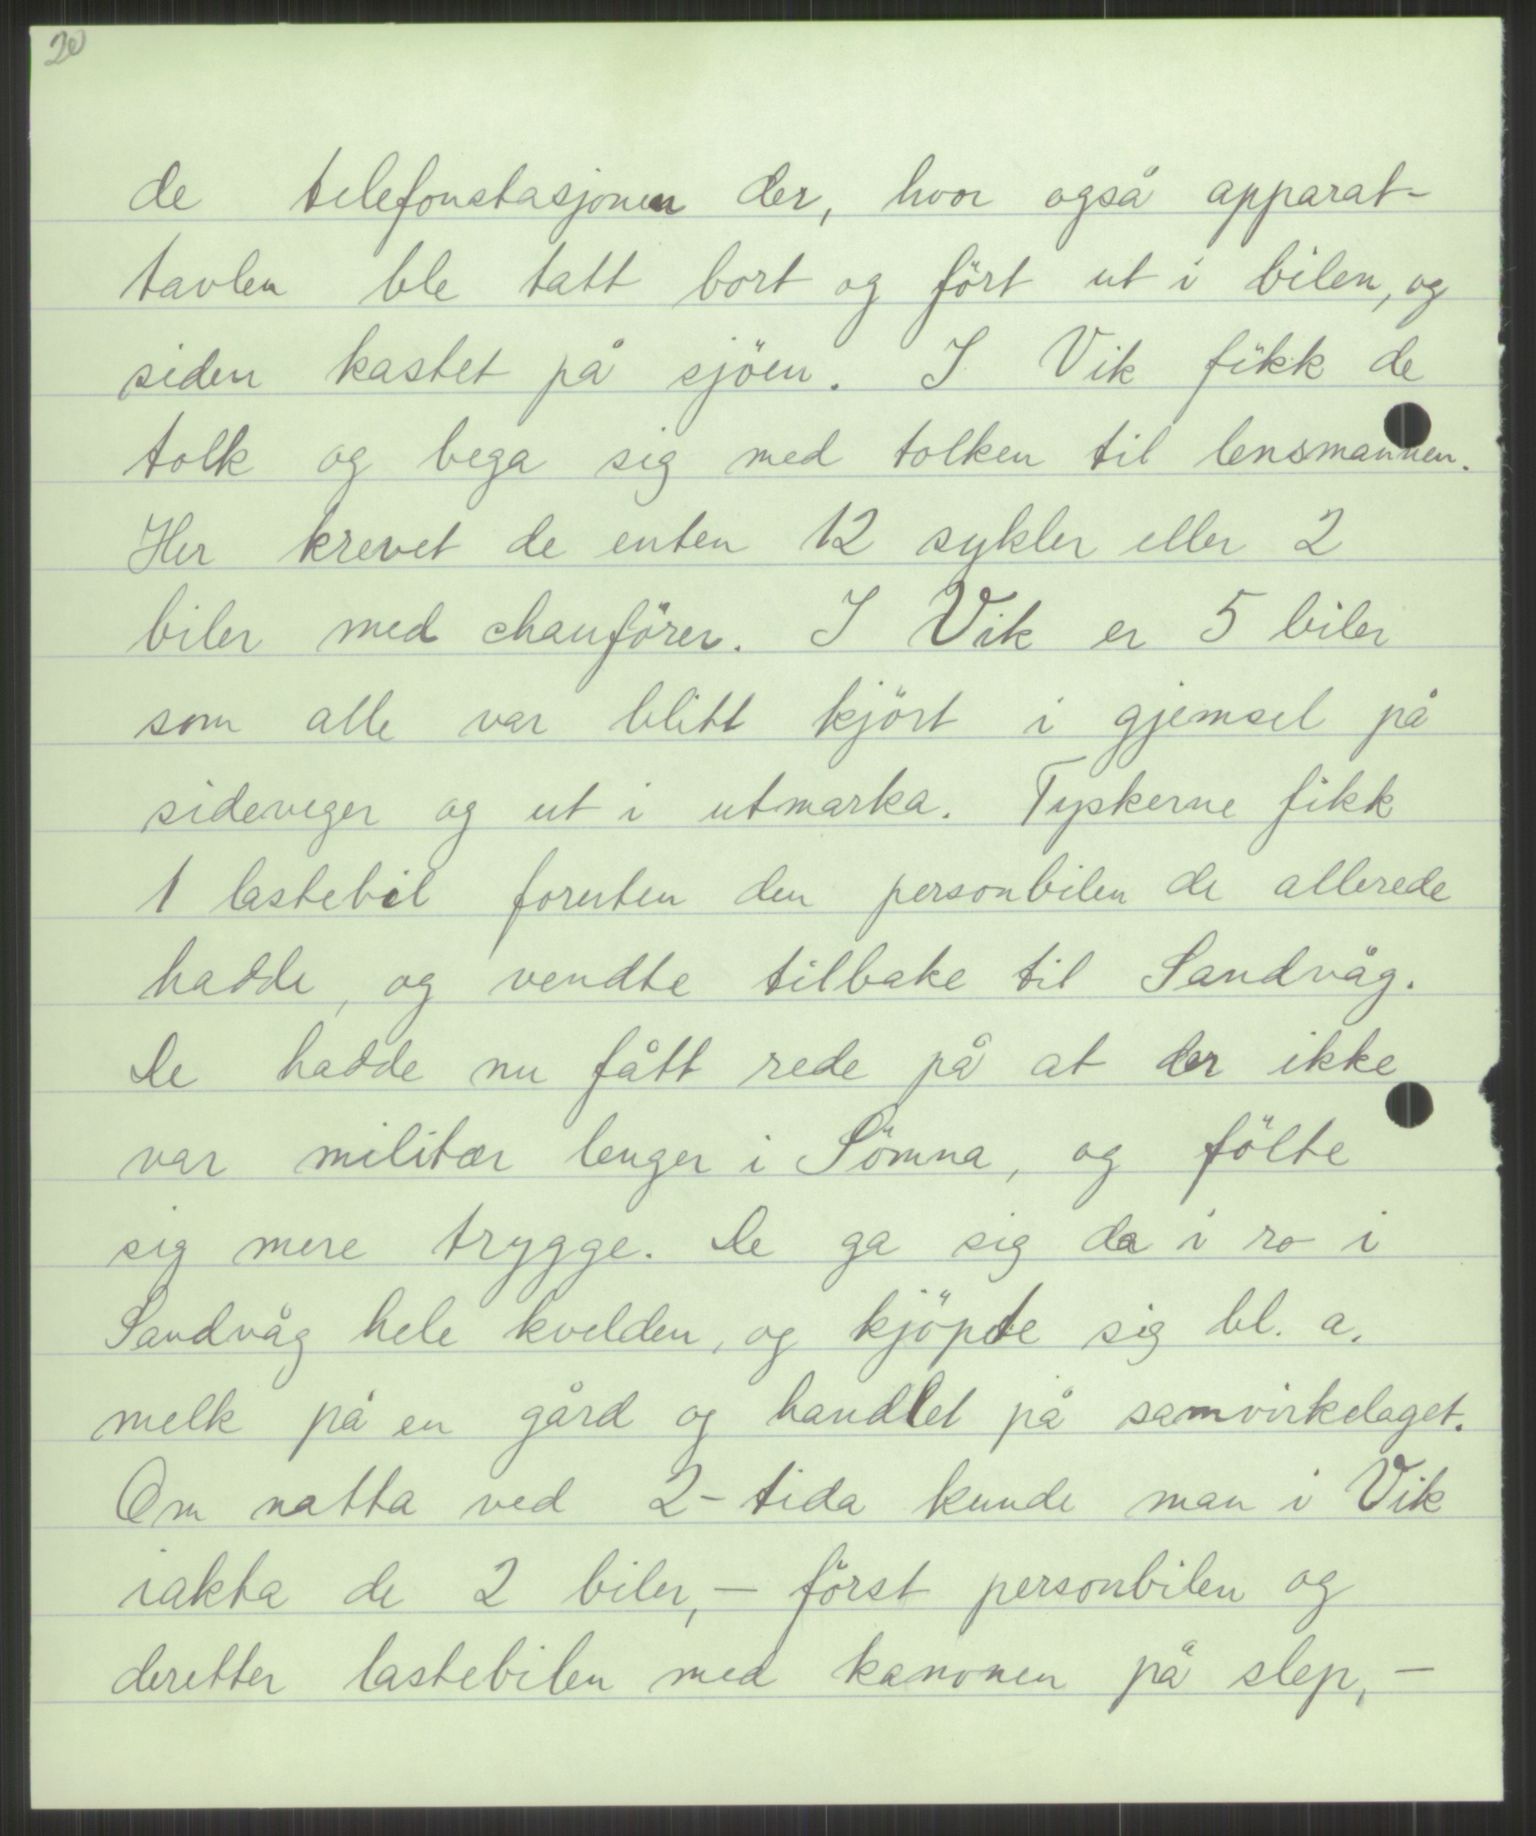 20
de telefonstasjonen der, hvor også apparat-
tavlen ble tatt bort og fört ut i bilen, og
siden kastet på sjöen. I Vik fikk de
tolk og bega sig med tolken til lensmannen.
Her krevet de enten 12 sykler eller 2
biler med chaufförer. I Vik er 5 biler
som alle var blitt kjört i gjemsel på
sideveger og ut i utmarka. Tyskerne fikk
1 lastebil foruten den personbilen de allerede
hadde, og vendte tilbake til Sandvåg.
De hadde nu fått rede på at der ikke
var militær lenger i Sömna, og fölte
sig mere trygge. De ga sig da i ro i
Sandvåg hele kvelden, og kjöpte sig bl. a.
melk på en gård og handlet på samvirkelaget.
Om natta ved 2-tida kunde man i Vik
iakta de 2 biler, - först personbilen og
deretter lastebilen med kanonen på slep, -